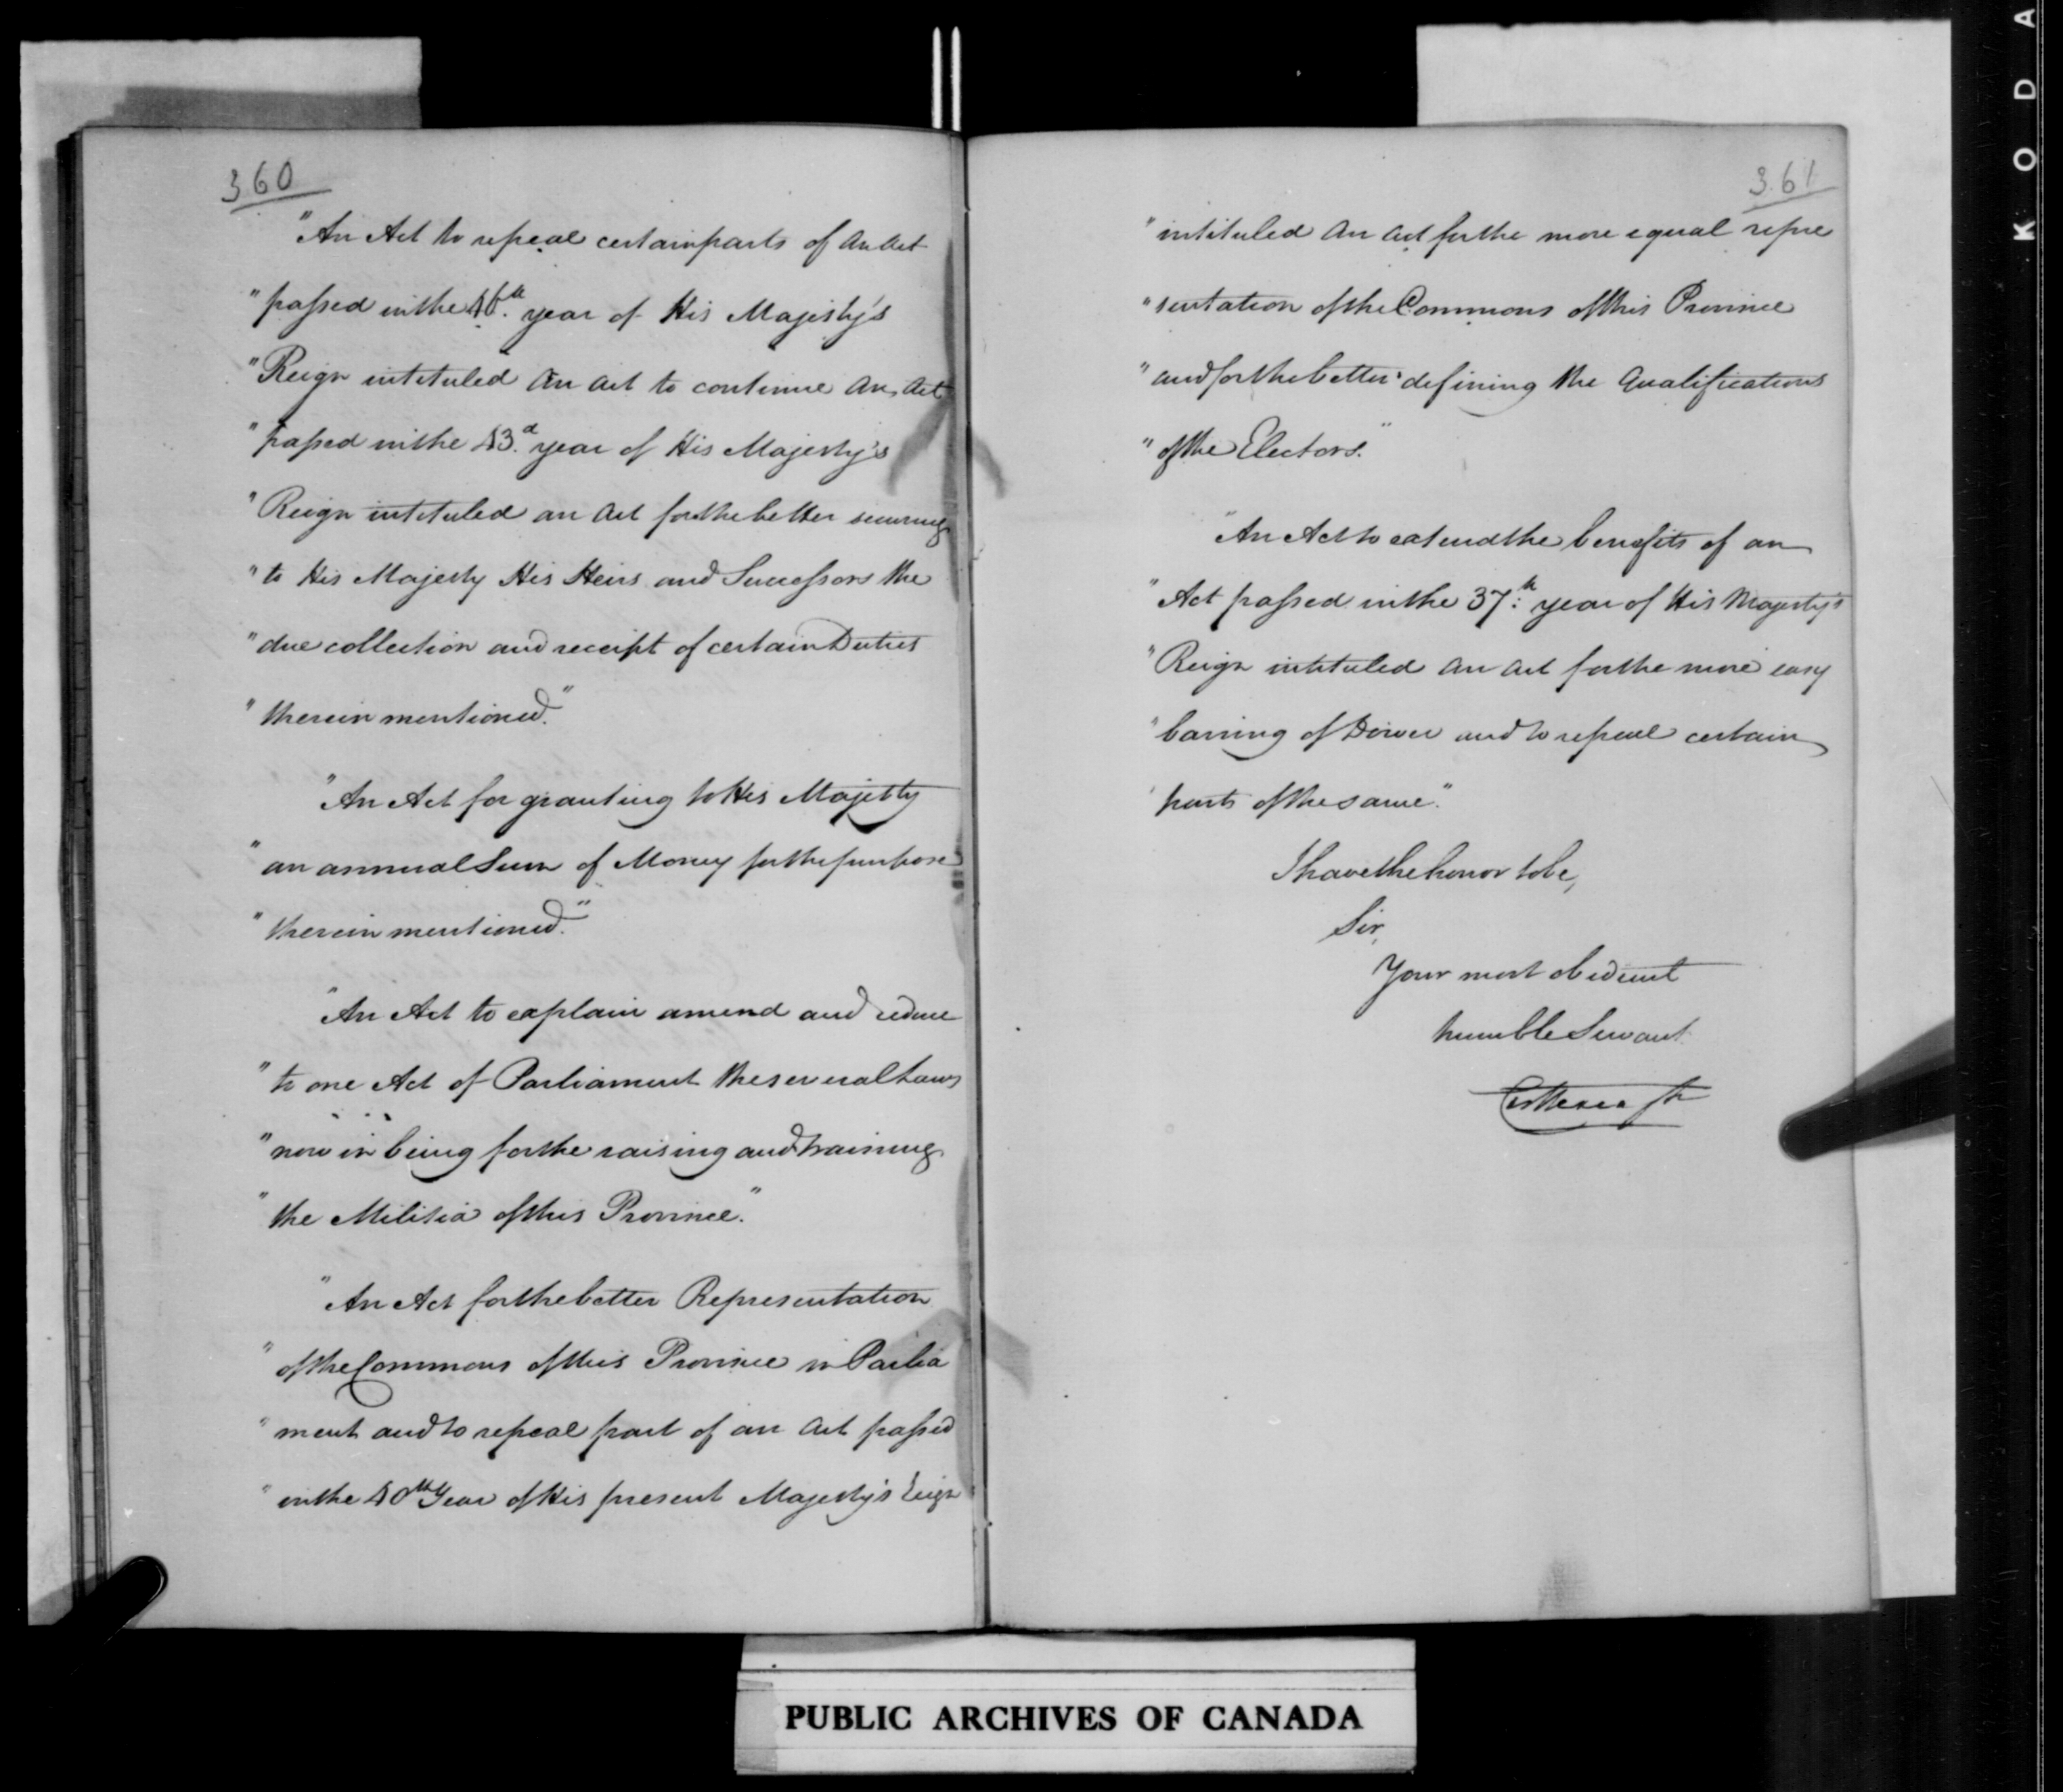 360
"An Act to repeal certain parts of an Act
"passed in the 46th. year of His Majesty's
"Reign intituled an act to continue an Act
"passed in the 43d. year of His Majesty's
"Reign intituled an act for the better securing
"to His Majesty His Heirs and Successors the
"due collection and receipt of certain Duties
"therein mentioned."
"An Act for granting to His Majesty
"an annual Sum of Money for the purpose
"therein mentioned."
"An Act to explain amend and reduce
"to one Act of Parliament the several Laws
"now in being for the raising and training
"the Militia of this Province."
"An Act for the better Representation
"of the Commons of this Province in Parlia
"ment and to repeal part of an Act passed
"in the 40th Year of His present Majesty's Reign
361
"intituled an act for the more equal repre
"sentation of the Commons of this Province
"and for the better defining the Qualifications
"of the Electors."
"An Act to extend the benefits of an
"Act passed in the 37th: year of His Majesty's
"Reign intituled an act for the more easy
"barring of Dower and to repeal certain
"parts of the same."
I have the honor to be,
Sir,
Your most obedient
humble Servant
Castlereagh
PUBLIC ARCHIVES OF CANADA
K O D A